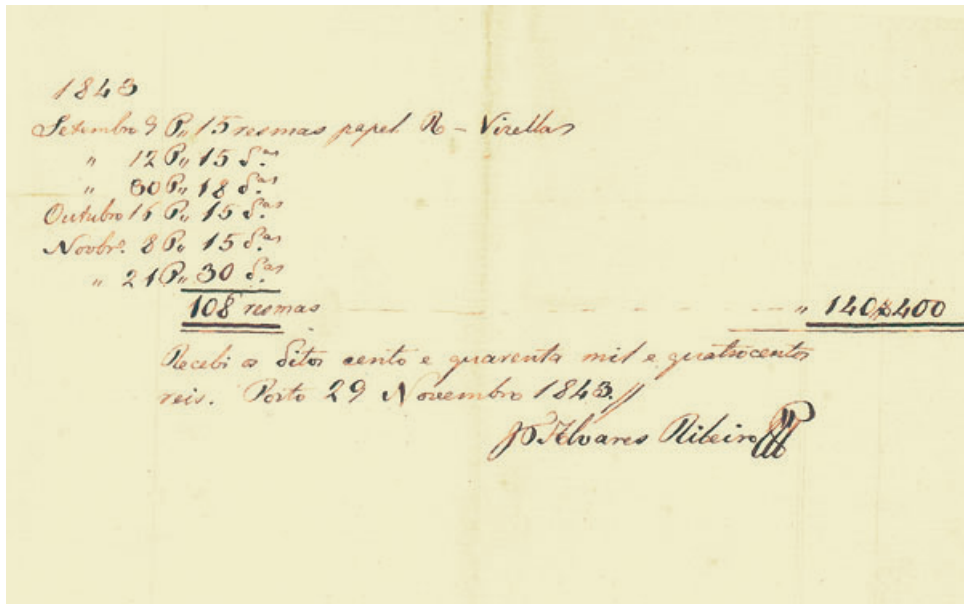 1843
Setembro 9 P,, 15 resmas papel R - Vizellas
" 12 P,, 15 d.as
" 30 P,, 18 d.as
Outubro 16 P,, 15 d.as
Novbr.o 8 P,, 15 d.as
" 21 P,, 30 d.as
108 resmas " 140$400
Recebi os ditos cento e quarenta mil e quatrocentos
reis. Porto 29 Novembro 1843.//
Alvares Ribeiro